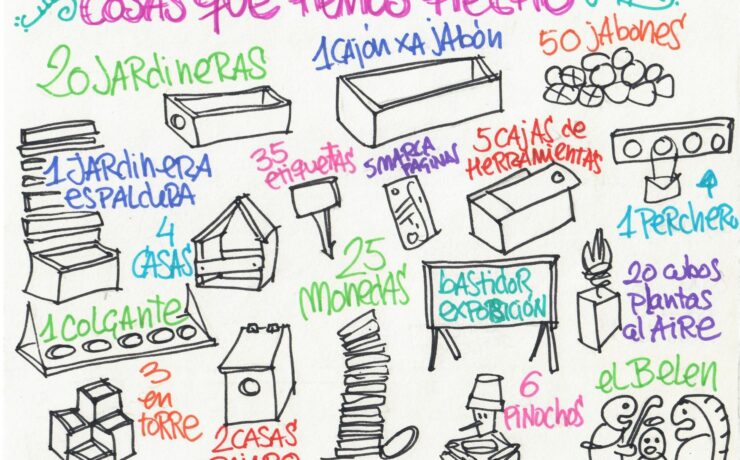 COSAS QUE HEMOS HECHO
20 JARDINERAS
1 CAJÓN XA JABÓN
50 JABONES
1 JARDINERA
ESPALDERA
35
ETIQUETAS
5 MARCA
PAGINAS
5 CAJAS de
HERRAMIENTAS
1 PERCHERO
4
CASAS
25
MONEDAS
bASTIDOR
EXPOSICIÓN
20 cubos
plantas
al AiRE
1 COLGANTE
3
en
torre
2 CASAS
PAJARO
6
PINOCHOS
el BELEN